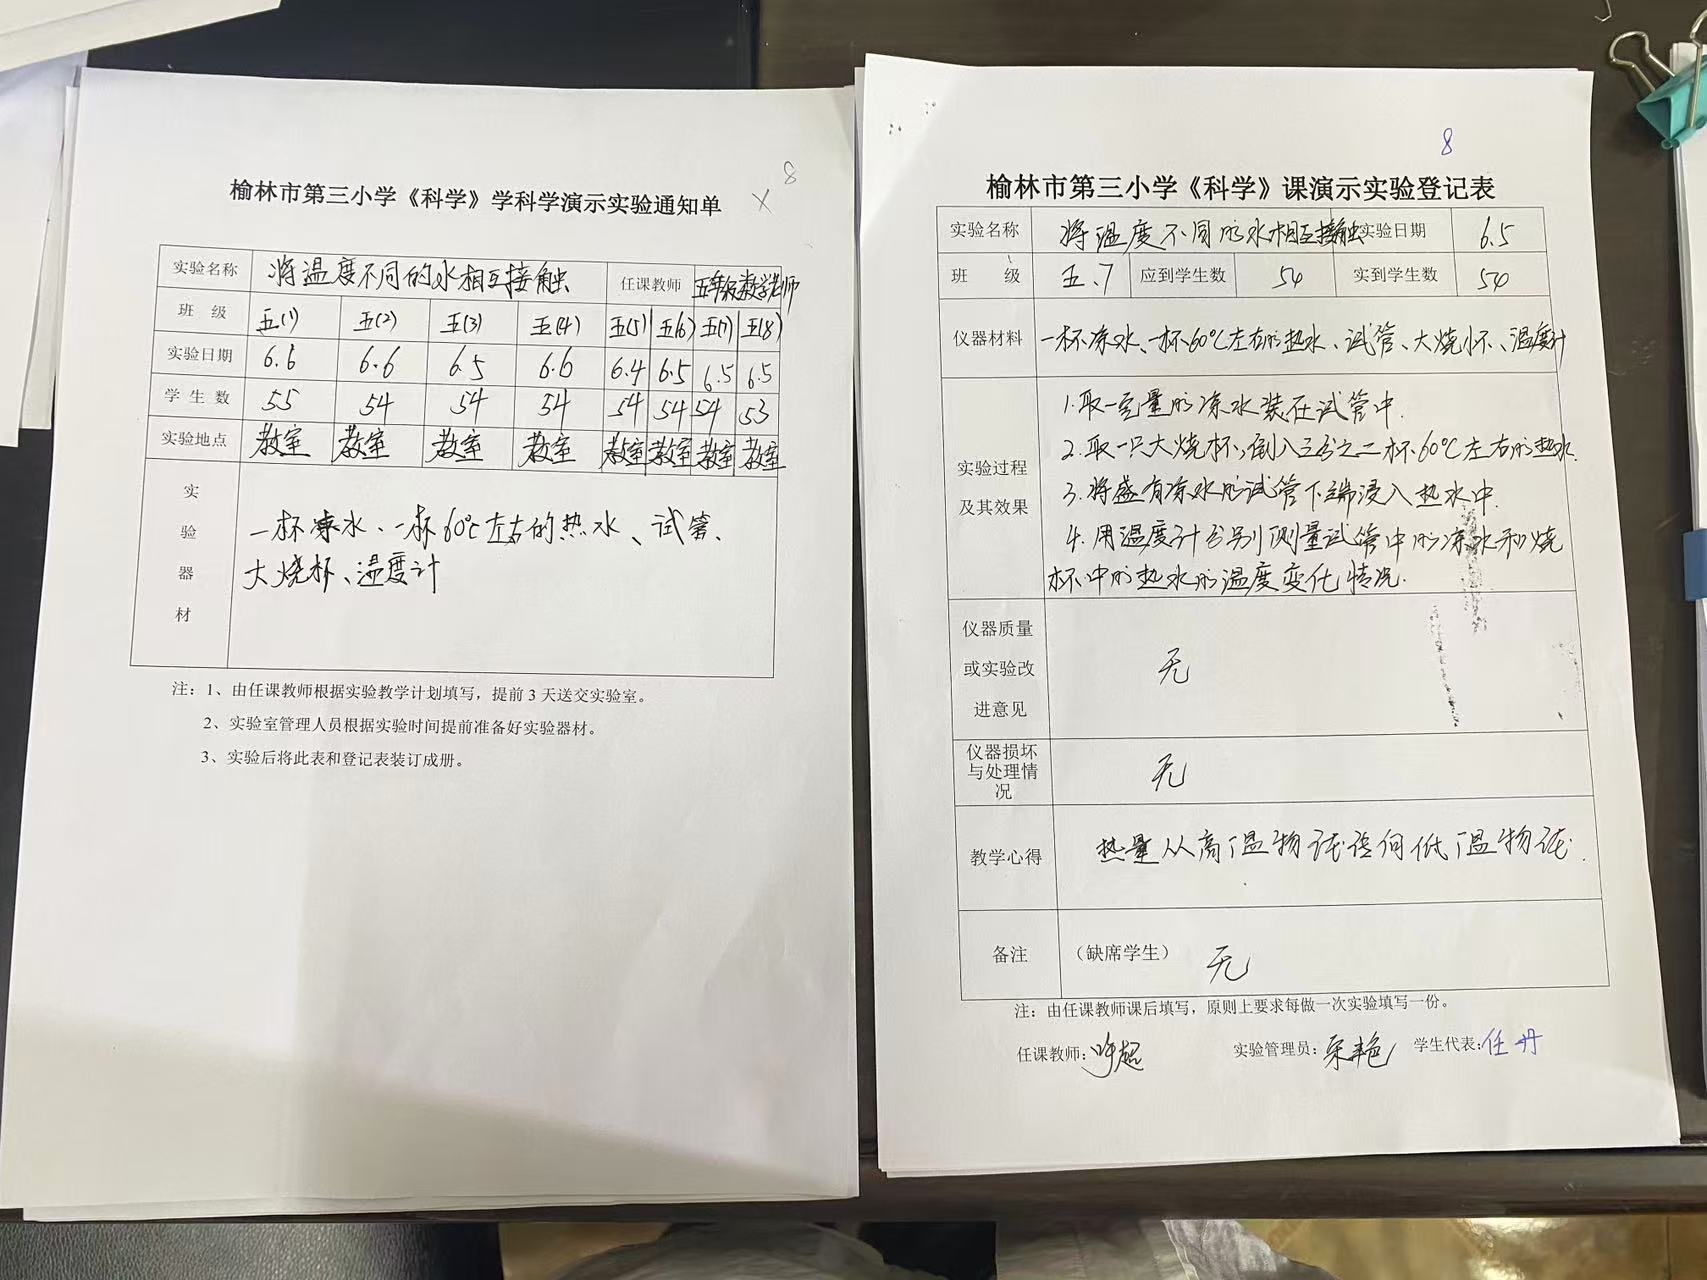 8
榆林市第三小学《科学》学科学演示实验通知单 X
实验名称 将温度不同的水相互接触 任课教师 五年级数学老师
班 级 五(1) 五(2) 五(3) 五(4) 五(5) 五(6) 五(7) 五(8)
实验日期 6.6 6.6 6.5 6.6 6.4 6.5 6.5 6.5
学 生 数 55 54 54 54 54 54 54 53
实验地点 教室 教室 教室 教室 教室 教室 教室 教室
实验器材
一杯凉水、一杯60℃左右的热水、试管、
大烧杯、温度计
注：1、由任课教师根据实验教学计划填写，提前 3 天送交实验室。
2、实验室管理人员根据实验时间提前准备好实验器材。
3、实验后将此表和登记表装订成册。
8
榆林市第三小学《科学》课演示实验登记表
实验名称 将温度不同的水相互接触 实验日期 6.5
班 级 五.7 应到学生数 54 实到学生数 54
仪器材料 一杯凉水、一杯60℃左右的热水、试管、大烧杯、温度计
实验过程
及其效果
1.取一定量的凉水装在试管中.
2.取一只大烧杯,倒入三分之二杯60℃左右的热水.
3.将盛有凉水的试管下端浸入热水中.
4.用温度计分别测量试管中的凉水和烧
杯中的热水的温度变化情况.
仪器质量
或实验改
进意见
无
仪器损坏
与处理情
况
无
教学心得 热量从高温物体传向低温物体.
备注 （缺席学生） 无
注：由任课教师课后填写，原则上要求每做一次实验填写一份。
任课教师: 许超 实验管理员: 宋艳 学生代表: 任丹